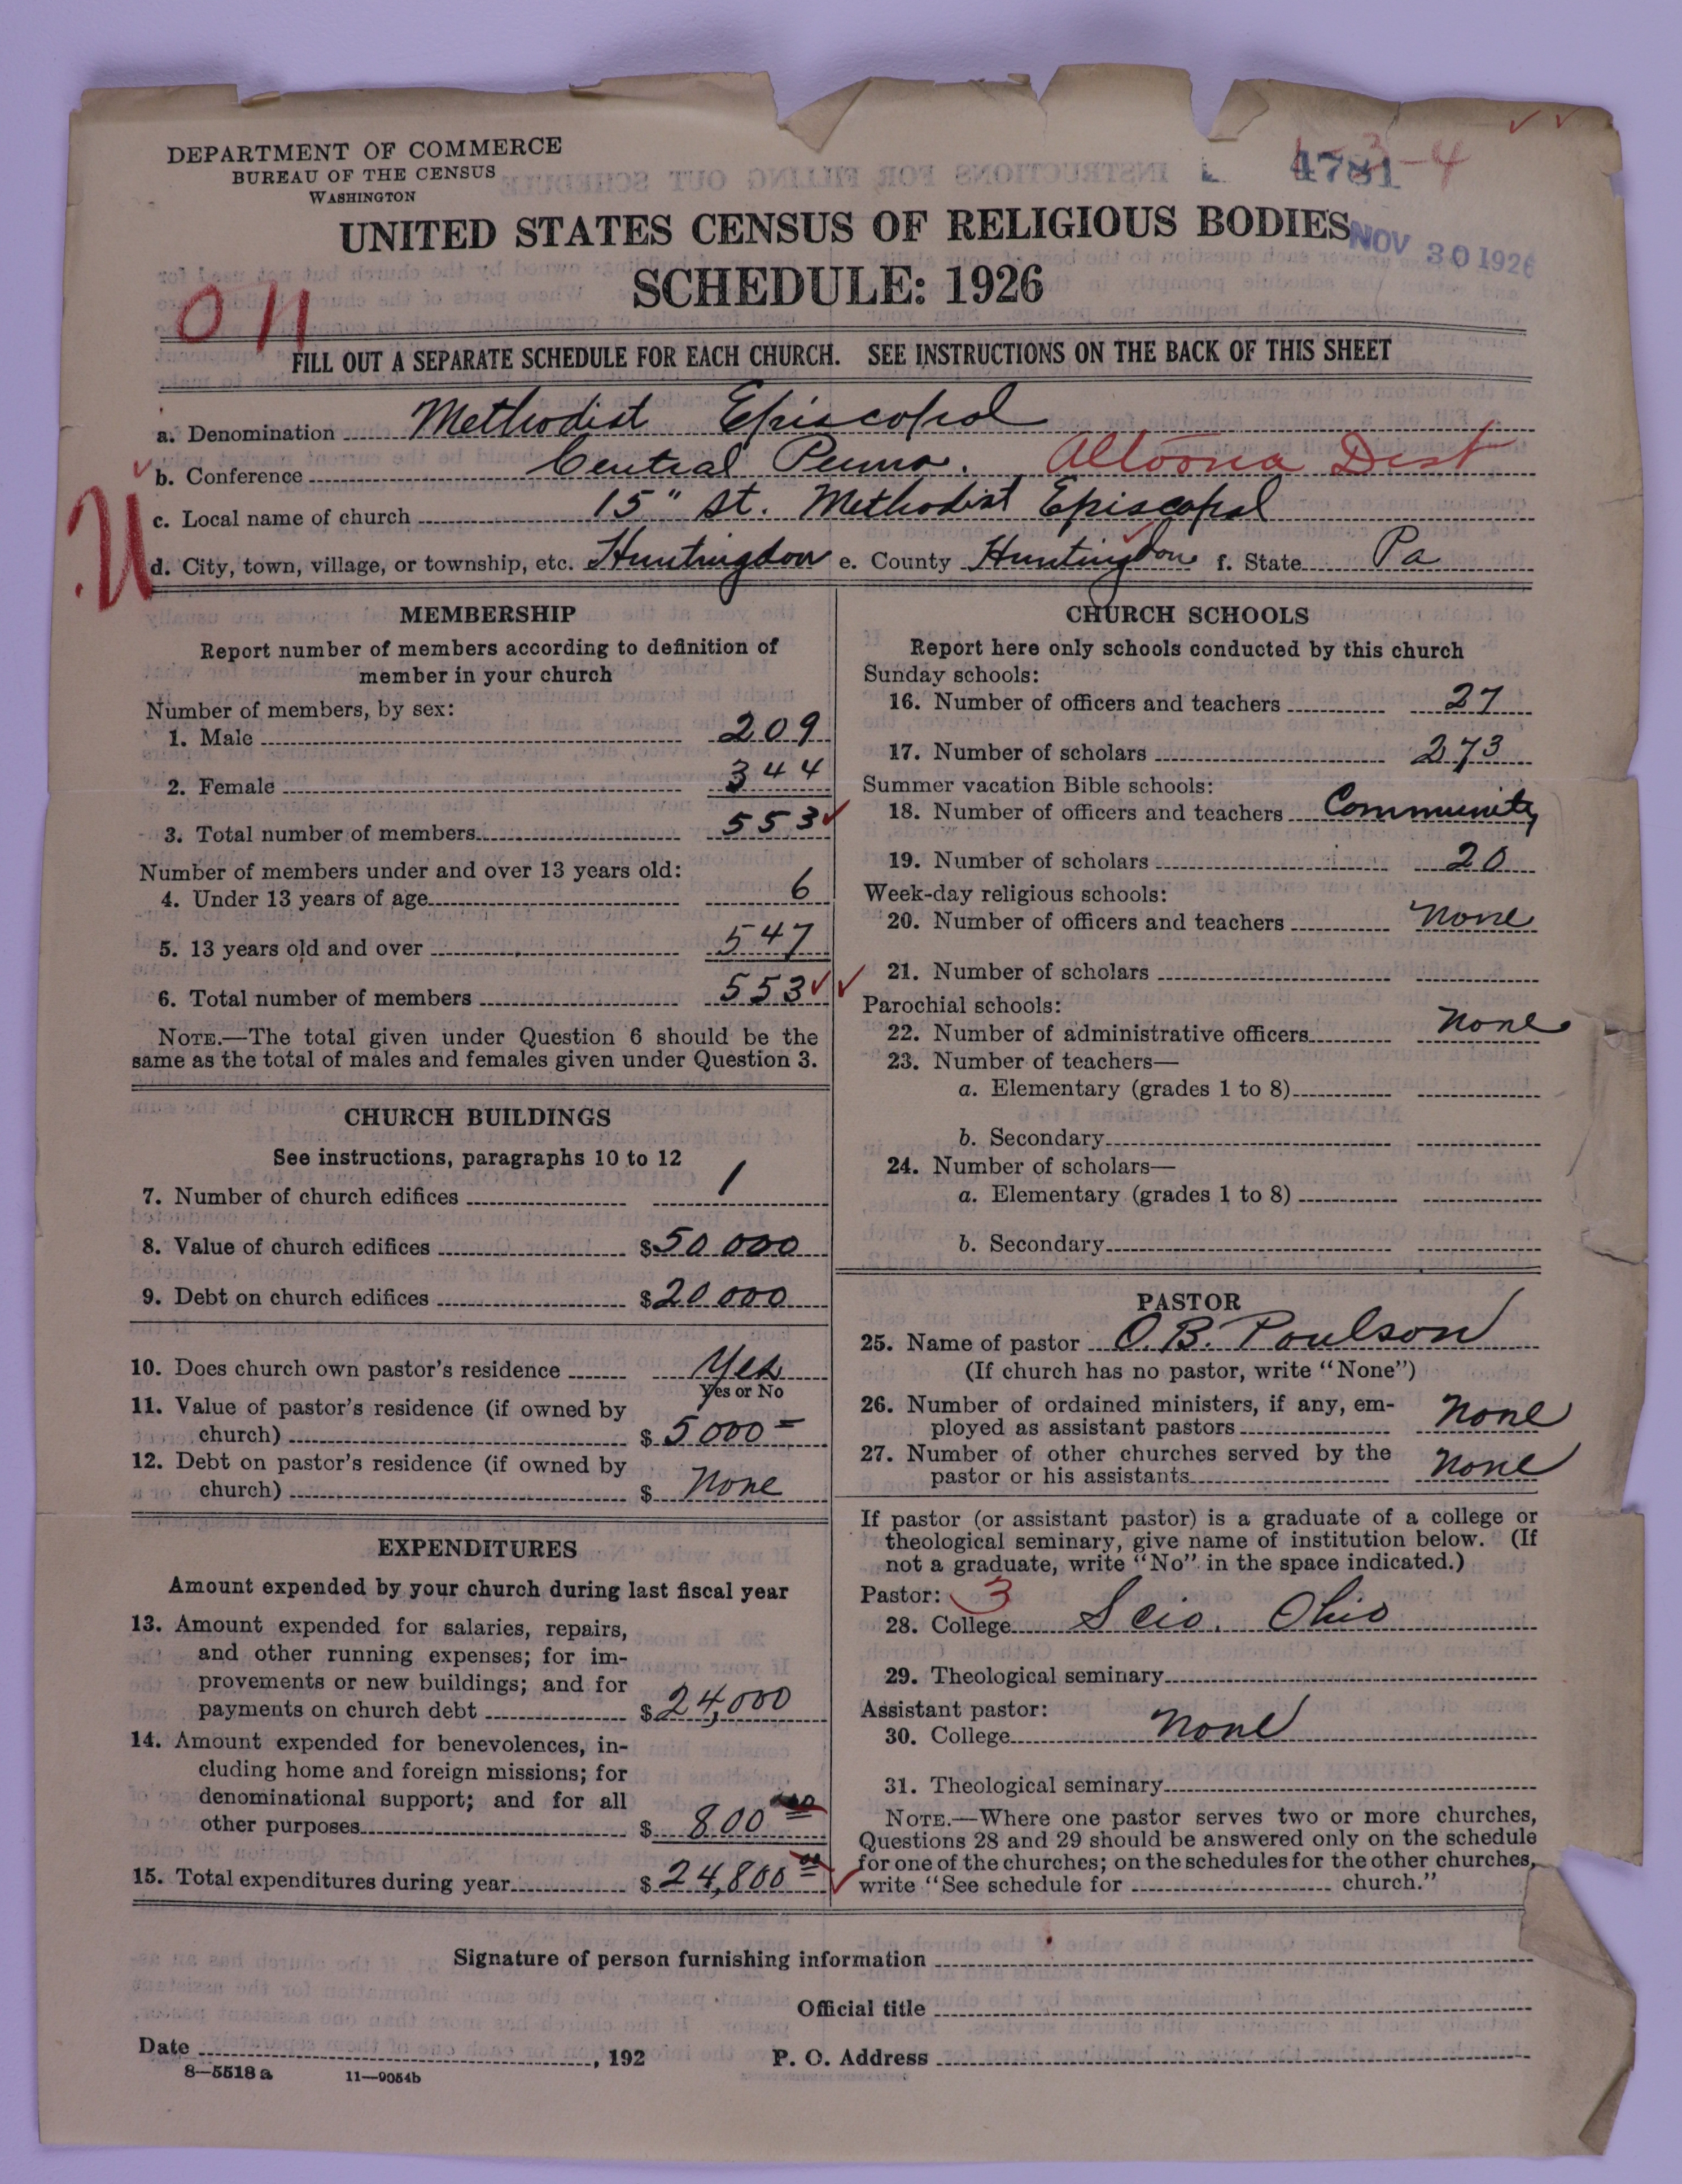 DEPARTMENT OF COMMERCE
BUREAU OF THE CENSUS
WASHINGTON
4781
-3-4
UNITED STATES CENSUS OF RELIGIOUS BODIES
NOV 30 1926
SCHEDULE: 1926
011
FILL OUT A SEPARATE SCHEDULE FOR EACH CHURCH. SEE INSTRUCTIONS ON THE BACK OF THIS SHEET
a. Denomination Methodist Episcopal
b. Conference Central Penna. Altoona Dist
c. Local name of church 15" St. Methodist Episcopal
U
d. City, town, village, or township, etc. Huntingdon e. County Huntingdon f. State Pa
MEMBERSHIP
Report number of members according to definition of
member in your church
Number of members, by sex:
1. Male 209
2. Female 344
3. Total number of members 553
Number of members under and over 13 years old:
4. Under 13 years of age 6
5. 13 years old and over 547
6. Total number of members 553
NOTE.—The total given under Question 6 should be the
same as the total of males and females given under Question 3.
CHURCH BUILDINGS
See instructions, paragraphs 10 to 12
7. Number of church edifices 1
8. Value of church edifices $50 000
9. Debt on church edifices $20 000
10. Does church own pastor's residence Yes
Yes or No
11. Value of pastor's residence (if owned by
church) $5000=
12. Debt on pastor's residence (if owned by
church) $ None
EXPENDITURES
Amount expended by your church during last fiscal year
13. Amount expended for salaries, repairs,
and other running expenses; for im-
provements or new buildings; and for
payments on church debt $24,000
14. Amount expended for benevolences, in-
cluding home and foreign missions; for
denominational support; and for all
other purposes $ 800
15. Total expenditures during year $24,800 00
CHURCH SCHOOLS
Report here only schools conducted by this church
Sunday schools:
16. Number of officers and teachers 27
17. Number of scholars 273
Summer vacation Bible schools:
18. Number of officers and teachers Community
19. Number of scholars 20
Week-day religious schools:
20. Number of officers and teachers None
21. Number of scholars
Parochial schools:
22. Number of administrative officers None
23. Number of teachers—
a. Elementary (grades 1 to 8)
b. Secondary
24. Number of scholars—
a. Elementary (grades 1 to 8)
b. Secondary
PASTOR
25. Name of pastor O. B. Poulson
(If church has no pastor, write "None")
26. Number of ordained ministers, if any, em-
ployed as assistant pastors None
27. Number of other churches served by the
pastor or his assistants None
If pastor (or assistant pastor) is a graduate of a college or
theological seminary, give name of institution below. (If
not a graduate, write "No" in the space indicated.)
Pastor: 3
28. College Scio. Ohio
29. Theological seminary
Assistant pastor:
30. College None
31. Theological seminary
NOTE.—Where one pastor serves two or more churches,
Questions 28 and 29 should be answered only on the schedule
for one of the churches; on the schedules for the other churches,
write "See schedule for church."
Signature of person furnishing information
Official title
Date , 192 P. O. Address
8—5518 a 11—9054b